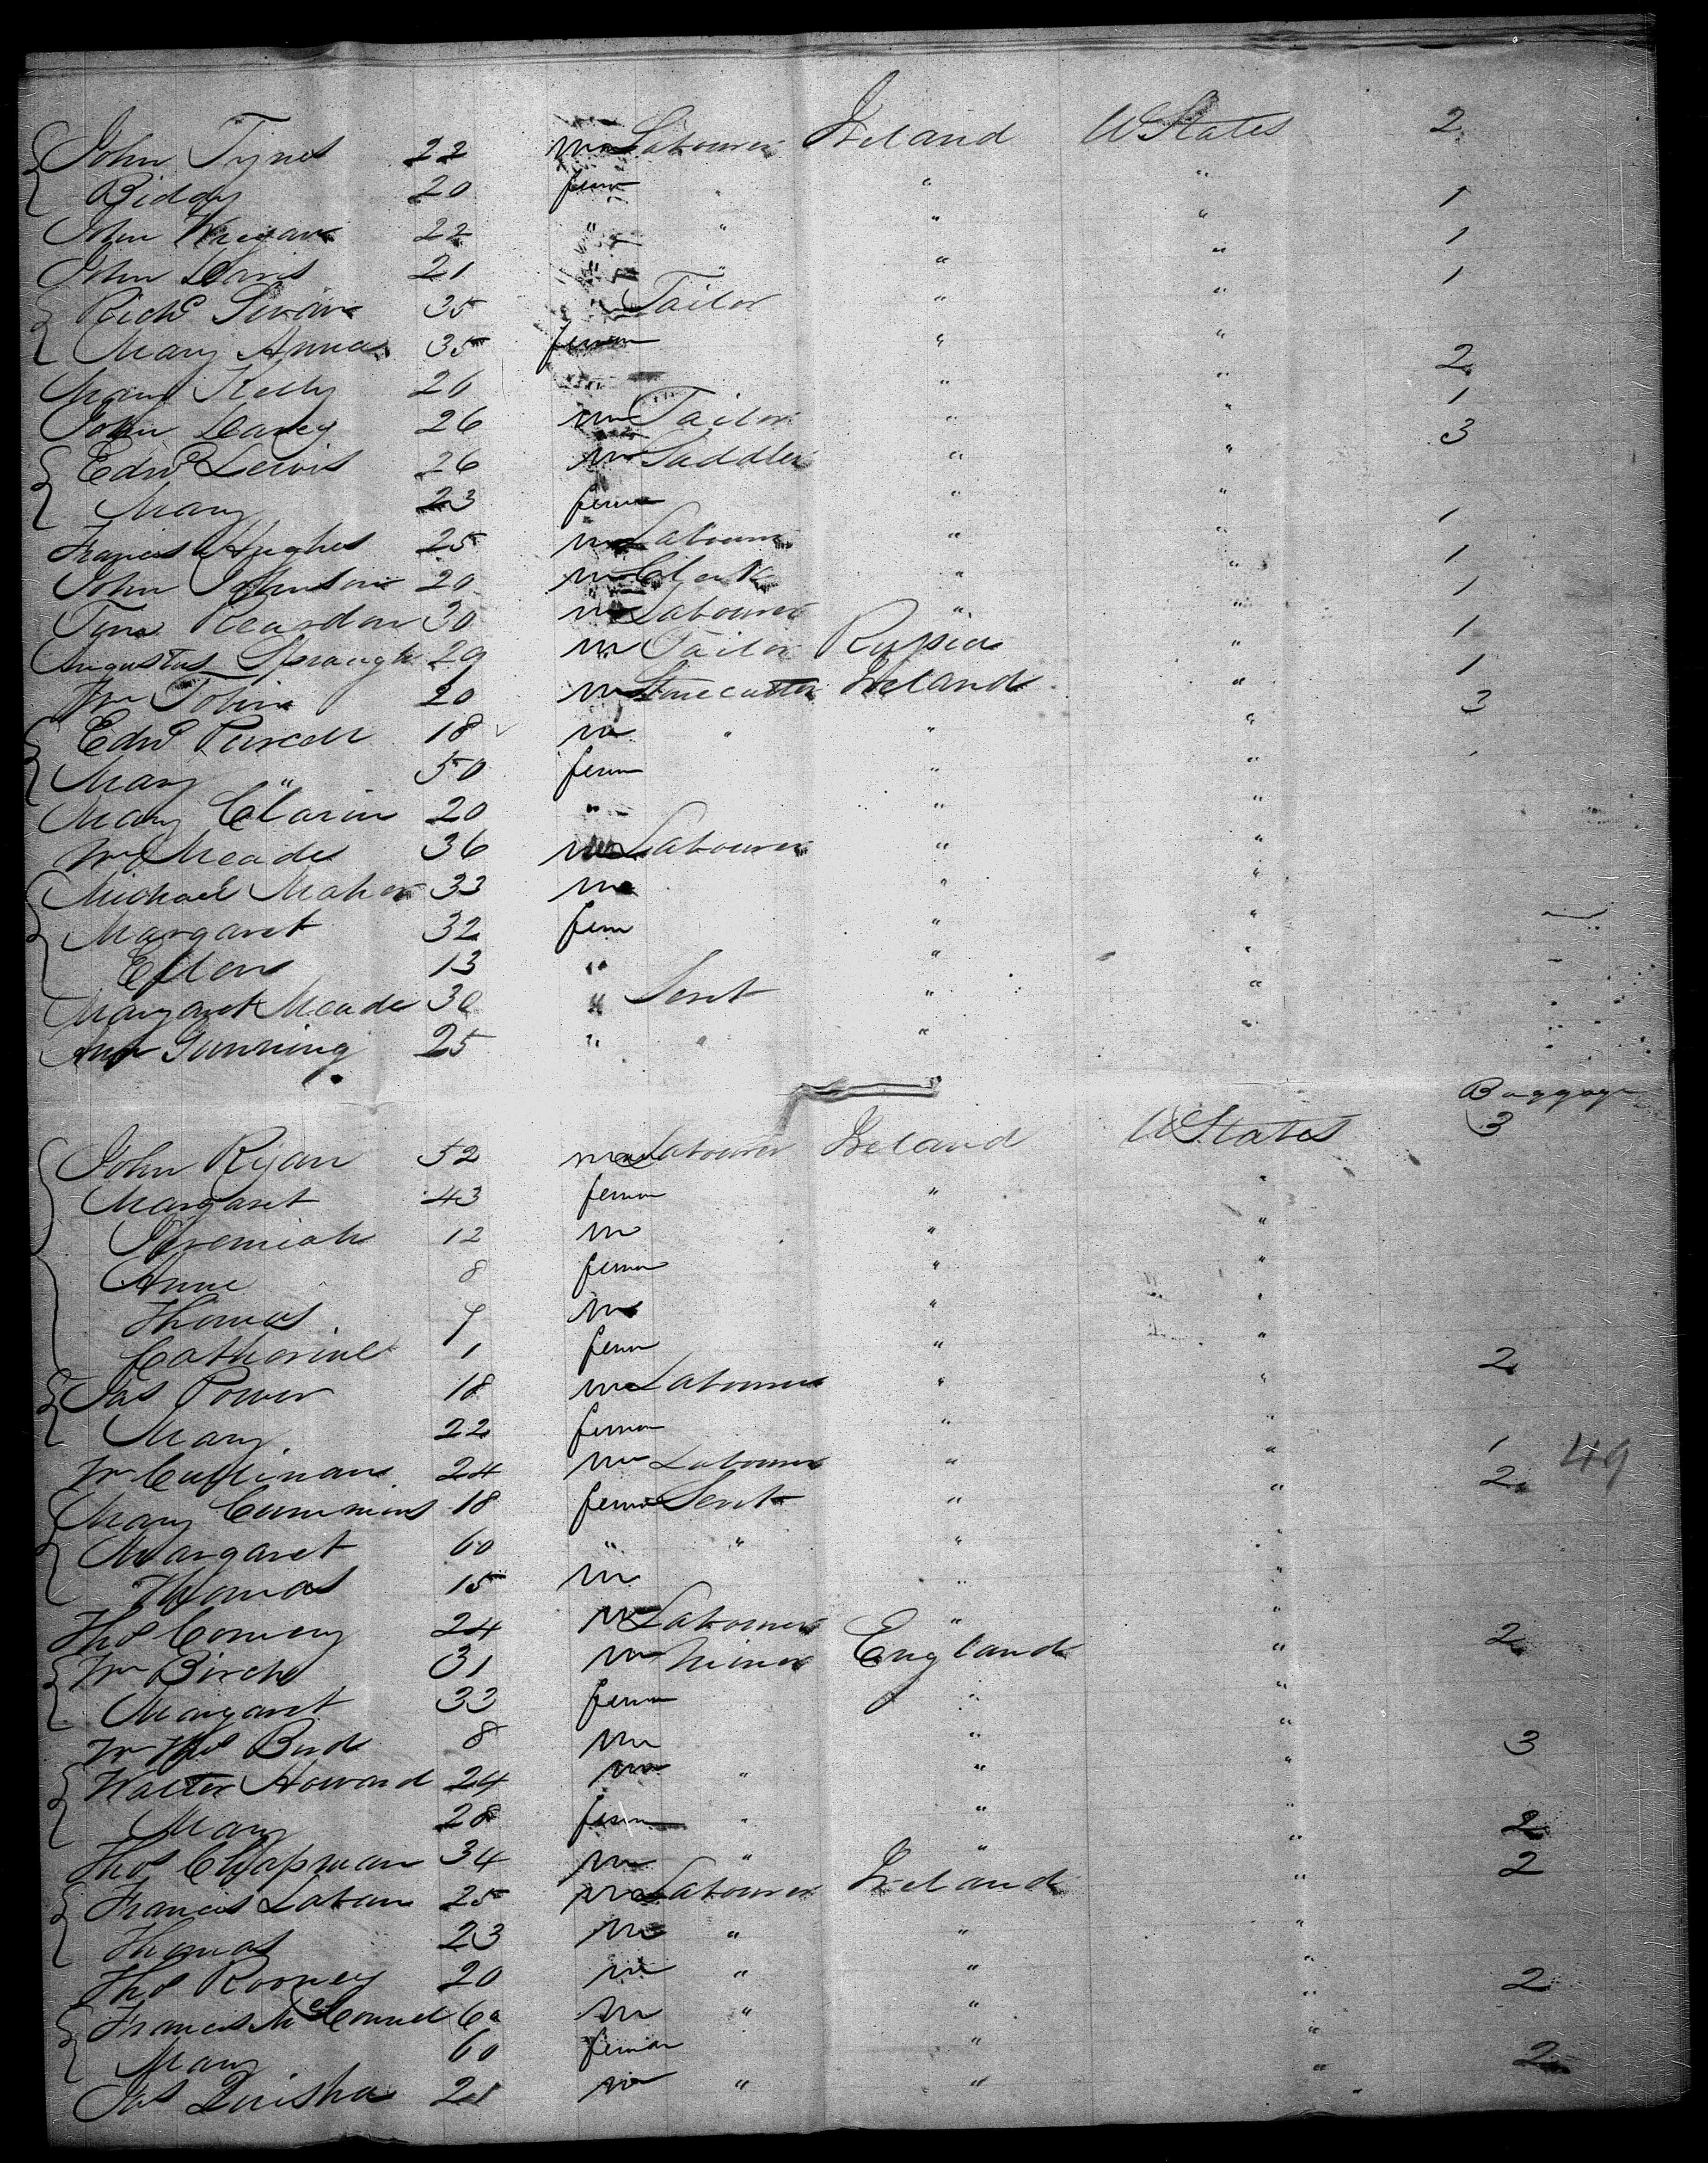 John Tynes 22 m Labourer Ireland U States 2
Biddy 20 fem " " "
John 22 " " " " 1
John Davis 21 " " " " 1
Richd Swan 35 " Tailor " " 1
Mary Anna 35 fem " "
Mary Kelly 26 " " 2
John Carey 26 m Tailor " " 1
Edwd Lewis 26 m Saddler " " 3
Mary 23 fem " "
Francis Hughes 25 m Labourer " " 1
John Johnson 20 m Clerk " " 1
Tim Reardon 30 m Labourer " " 1
Augustus 29 m Tailor Russia " 1
Wm Tobin 20 m Stonecutter Ireland " 1
Edwd Purcell 18 m " " " 3
Mary " 50 fem " "
Mary Clarin 20 " " "
Wm Meade 36 m Labourer " "
Michael Maher 33 m " "
Margaret 32 fem " "
Ellen 13 " " "
Margaret Meade 30 " Servt " "
Ann Gunning 25 " " " "
Baggage
John Ryan 52 m Labourer Ireland U States 3
Margaret 43 fem " "
Jeremiah 12 m " "
Anne 8 fem " "
Thomas m " "
Catherine 1 fem " "
Jas Power 18 m Labourer " " 2
Mary 22 fem " "
Wm Cullinane 24 m Labourer " " 1 49
Mary Cummins 18 fem Servt " " 2
Margaret 60 " " " "
Thomas 15 m " "
Thos Comery 24 m Labourer " "
Wm Birch 31 m Miner England " 2
Margaret 33 fem " "
Wm Thos Bird 8 m " "
Walter Howard 24 m " " " 3
Mary 28 fem " " "
Thos Chapman 34 m " " " 2
Francis Laban 25 m Labourer Ireland " 2
Thomas 23 m " " "
Thos Rooney 20 m " " "
Francis McConnel 60 m " " " 2
Mary 60 fem " "
Jas 21 m " " " 2